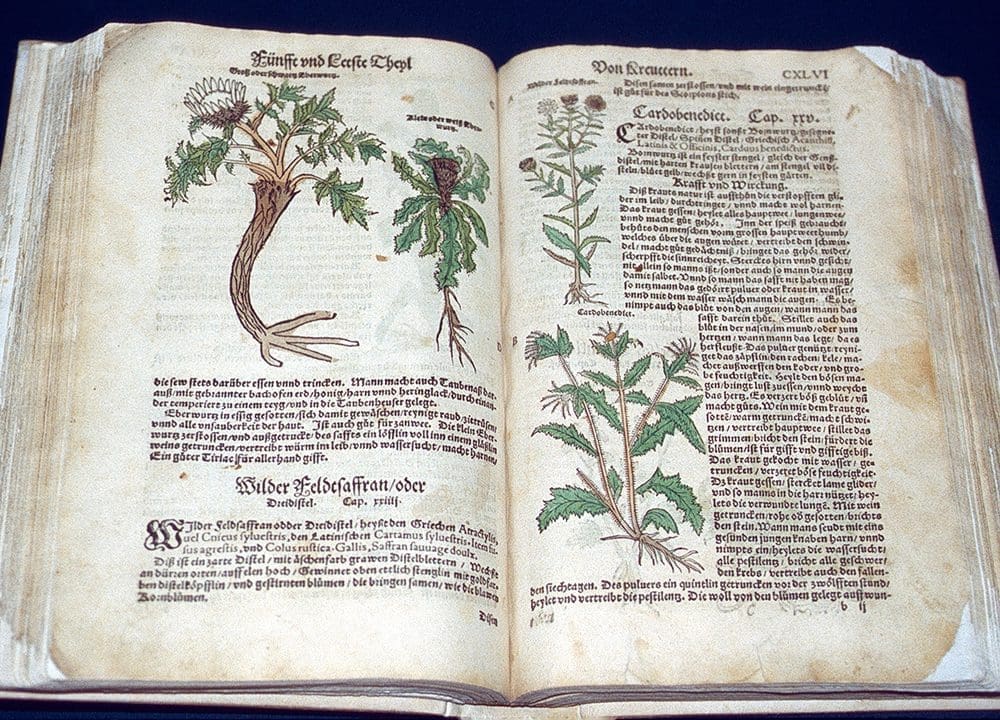 Fünffe vnd Letste Theyl
Groß oder schwartz Eberwurtz.
Klein oder weiß Eber-
wurtz.
die sew stets darüber essen vnnd trincken. Mann macht auch Taubenaß dar-
auß/mit gebrannter bachofen erd/honig/harn vnnd heringlack/durch einan-
der temperiert zu einem teyg/vnd in die Taubenheuser gelegt.
Eberwurtz in essig gesotten/sich damit gewäschen/reynigt raud/zitrüsen/
vnnd alle vnsauberkeit der haut. Ist auch gůt für zanwee. Die klein Eber-
wurtz zerstossen/vnd außgetruckt/des saffts ein löfflin voll inn einem gläßlin
weins getruncken/vertreibt würm im leib/vnnd wassersucht/macht harnen/
Ein gůter Tiriac für allerhand gifft.
Wilder Feldtsaffran/oder
Dreidistel. Cap. xxiiij.
WIlder Feldsaffran odder Dreidistel/heyßt den Griechen Atractylis,
uel Cnicus syluestris, den Latinischen Cartamus syluestris. Item fu-
sus agrestis, vnd Colus rustica. Gallis, Saffran sauuage doulx.
Diß ist ein zarte Distel/mit äschenfarb grawen Distelblettern/Wechßt
an dürren orten/auff den hoch/Gewinnet oben etlich stenglin mit goldfar-
ben distelköpfflin/vnd gestirnten blůmen/die bringen samen/wie die blawen
Kornblůmen.
Disen
Von Kreuttern. CXLVI
Wilder Feldtsaffran.
Disen samen zerstossen/vnnd mit wein eingetruncken/
ist gůt für des Scorpions stich.
Cardobenedict. Cap. xxv.
CArdobenedict/heyßt sonst Bornwurtz/gesegne-
ter Distel/Spitzen Distel/Griechisch Acanthiũ,
Latinis & Officinis, Carduus benedictus.
Bornwurtz ist ein feyster stengel/gleich der Genß-
distel/mit harten krausen blettern/am stengel vil di-
steln/blůet gelb/wechßt gern in feysten gärten.
Krafft vnd Wirckung.
Diß krauts natur ist auffthůn die verstopfften gli-
der im leib/durchtringet/vnnd macht wol harnen.
Das kraut gessen/heylet alles hauptwee/lungenwee/
vnnd macht gůt gehör. Inn der speiß gebraucht/
behůts den menschen vom grossen hauptwee
welches über die augen wütet/vertreibt den schwin-
del/macht gůt gedächtniß/bringet das gehör wider/
scherpfft die sinnreicheyt. Stercket hirn vnnd gesicht/
nit allein so manns ißt/sonder auch so mann die augen
damit salbet. Vnnd so mann das safft nit haben mag/
so netz man das gedört puluer oder kraut in wasser/
vnnd mit dem wasser wäsch mann die augen. Es be-
nimpt auch das blůt von den augen/wann mann das
safft darein thůt. Stillet auch das
blůt in der nasen/im mund/oder zum
hertzen/wann mann das legt/da es
herfleußt. Das puluer genützt/reyni-
get das zäpflin/den rachen/kele/ma-
chet außwerffen den koder/vnd gro-
be feuchtigkeit. Heylt den bösen ma-
gen/bringt lust zu essen/vnnd weycht
das hertz. Es verzert böß geblüt/vñ
macht gůts. Wein mit dem kraut ge-
sotten/warm getruncken/macht schwi-
tzen/vertreibt hauptwee/stillet das
grimmen/bricht den stein/fürdert die
blůmen/ist für gifft vnd gifftige biß.
Das kraut gekocht mit wasser/ge-
truncken/verzeret böse feuchtigkeit.
Dz kraut gessen/stercket lame glider/
vnd so manns in die harn nützet/hey-
lets die verwundte lungẽ. Mit wein
getruncken/rohe od gesotten/brichts
den stein. Wann mans seudt mit eins
gesunden jungen knaben harn/vnnd
nimpts ein/heylets die wassersucht/
alle pestilentz/bricht alle geschwer/
den krebs/vertreibt auch den fallen-
Cardobenedict.
den siechtagen. Des puluers ein quintlin getruncken vor der zwölfften stund/
heylet vnd vertreibt die pestilentz. Die woll von den blůmen gelegt auff wun-
b ij